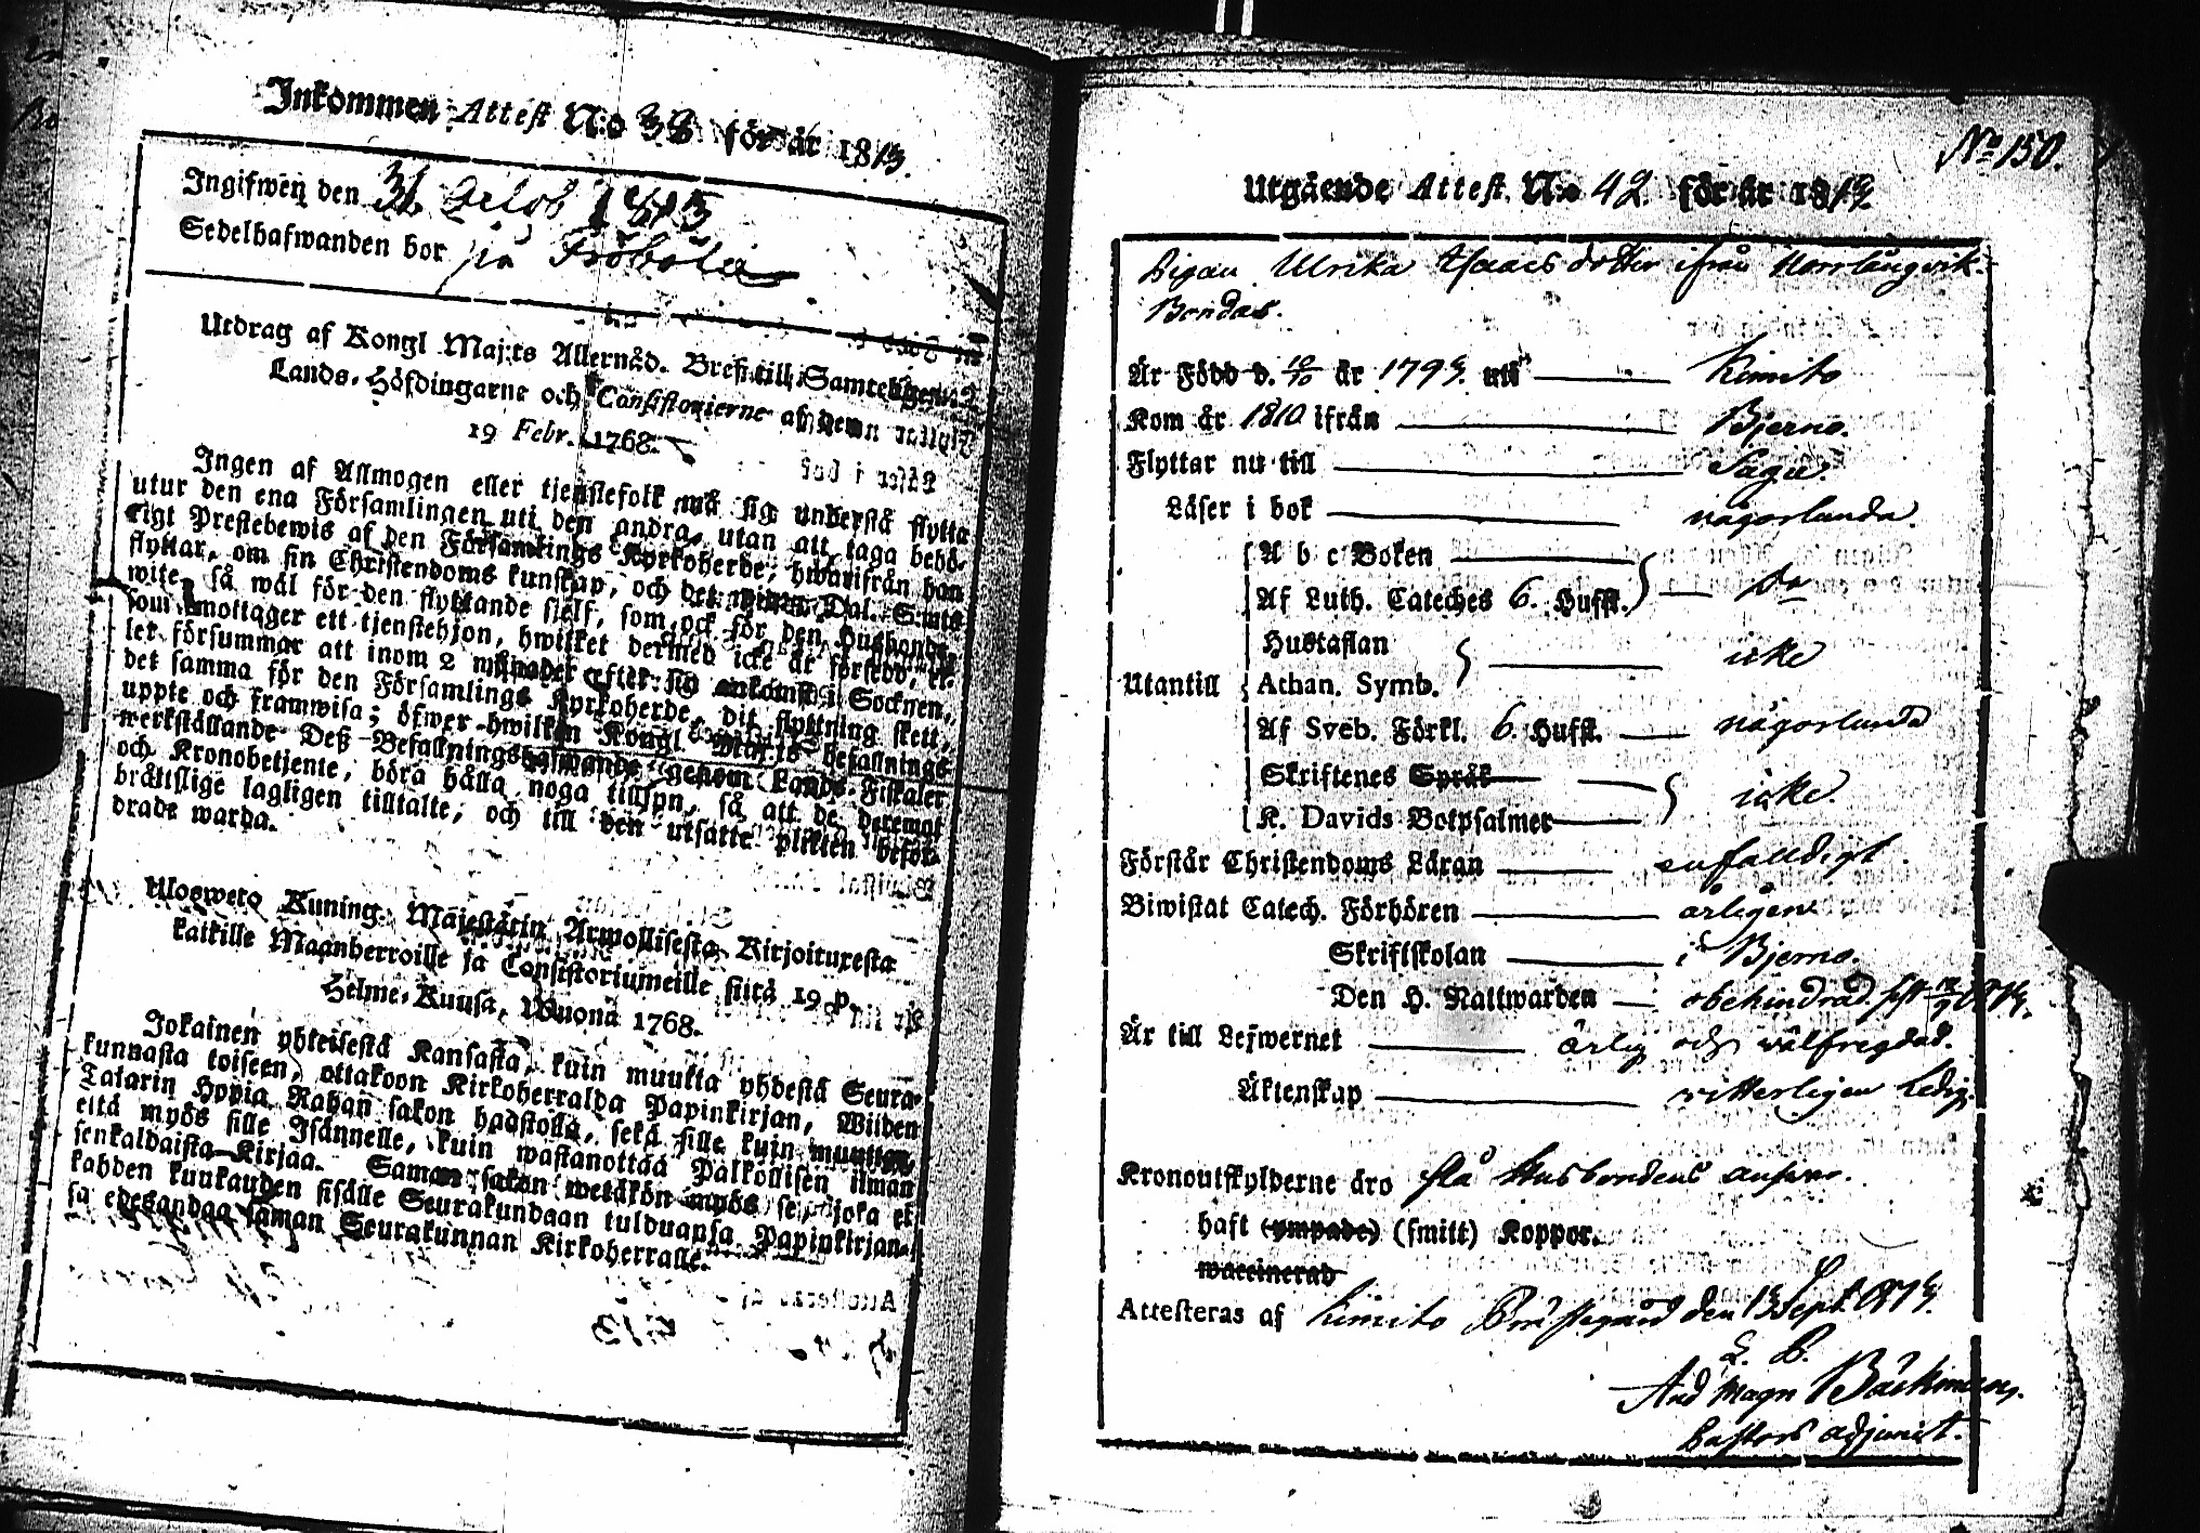 Inkommen Attest N:o 38 för år 1813.
Ingifwen den 31 Octob 1813
Sedelhafwanden bor på Fröböle
Utdrag af Kongl Maj:ts Allernåd. Bref till Samtelige
Lands-Höfdingarne och Consistorierne af den
19 Febr. 1768.
Ingen af Allmogen eller tjenstefolk må sig understå flytta
utur den ena Församlingen uti den andra, utan att taga behö-
rigt Prestebewis af den Församlings Kyrkoherde, hwarifrån han
flyttar, om sin Christendoms kunskap, och det wid Dal. S:mts
wite, så wäl för den flyttande sjelf, som ock för den Husbonde,
som emottager ett tjenstehjon, hwilket dermed icke är försedd, el-
ler försummar att inom 2 månader efter sin ankomst i Socknen,
det samma för den Församlings Kyrkoherde, dit flyttning skett,
uppte och framwisa; öfwer hwilken Kongl. Maj:ts befallnings
werkställande Deß Befallningshafwande genom Lands-Fiskaler
och Kronobetjente, böra hålla noga tillsyn, så att de deremot
bråttslige lagligen tilltalte, och till den utsatte plikten befor-
drade warda.
Uloswero Kuning. Majestätin Armollisesta Kirjoituxesta
kaikille Maanherroille ja Consistoriumeille siitä 19 p.
Helme-Kuusa, Wuonä 1768.
Jokainen yhteisestä Kansasta, kuin muutta yhdestä Seura-
kunnasta toiseen, ottakoon Kirkoherralda Papinkirjan, Wiiden
Talarin Hopia Rahan sakon haastolla, sekä sille kuin muuttaa,
että myös sille Isännelle, kuin wastanottaa Palkollisen ilman
senkaldaista Kirjaa. Saman sakon wetäkön myös se, joka ei
kahden kuukauden sisälle Seurakundaan tulduansa Papinkirjan-
sa edesandaa saman Seurakunnan Kirkoherralle.
No 150.
Utgående Attest. N:o 42 för år 1813.
Pigan Ulrika Isaacs dotter ifrån Norrlångvik
Bondas.
Är Född d. 12/10 år 1793. uti Kimito
Kom år 1810 ifrån Bjerno.
Flyttar nu till Sagu.
Läser i bok någorlunda.
A b c Boken
Af Luth. Cateches 6. Hufst. do
Hustaflan
Utantill Athan. Symb. icke
Af Sveb. Förkl. 6. Hufst. någorlunda
Skriftenes Språk
K. Davids Botpsalmer icke.
Förstår Christendoms Läran enfaldigt
Biwistat Catech. Förhören årligen
Skriftskolan i Bjerno.
Den H. Nattwarden obehindrad.
Är till Lefwernet ärlig och wälfregdad.
Äktenskap vitterligen ledig.
Kronoutskylderne äro på Husbondens answar.
haft (ympade) (smitt) Koppor.
waccinerad
Attesteras af Kimito Prästegård den 13 Sept. 1813.
L. B.
And Magn Bäckman,
Pastors adjunct.